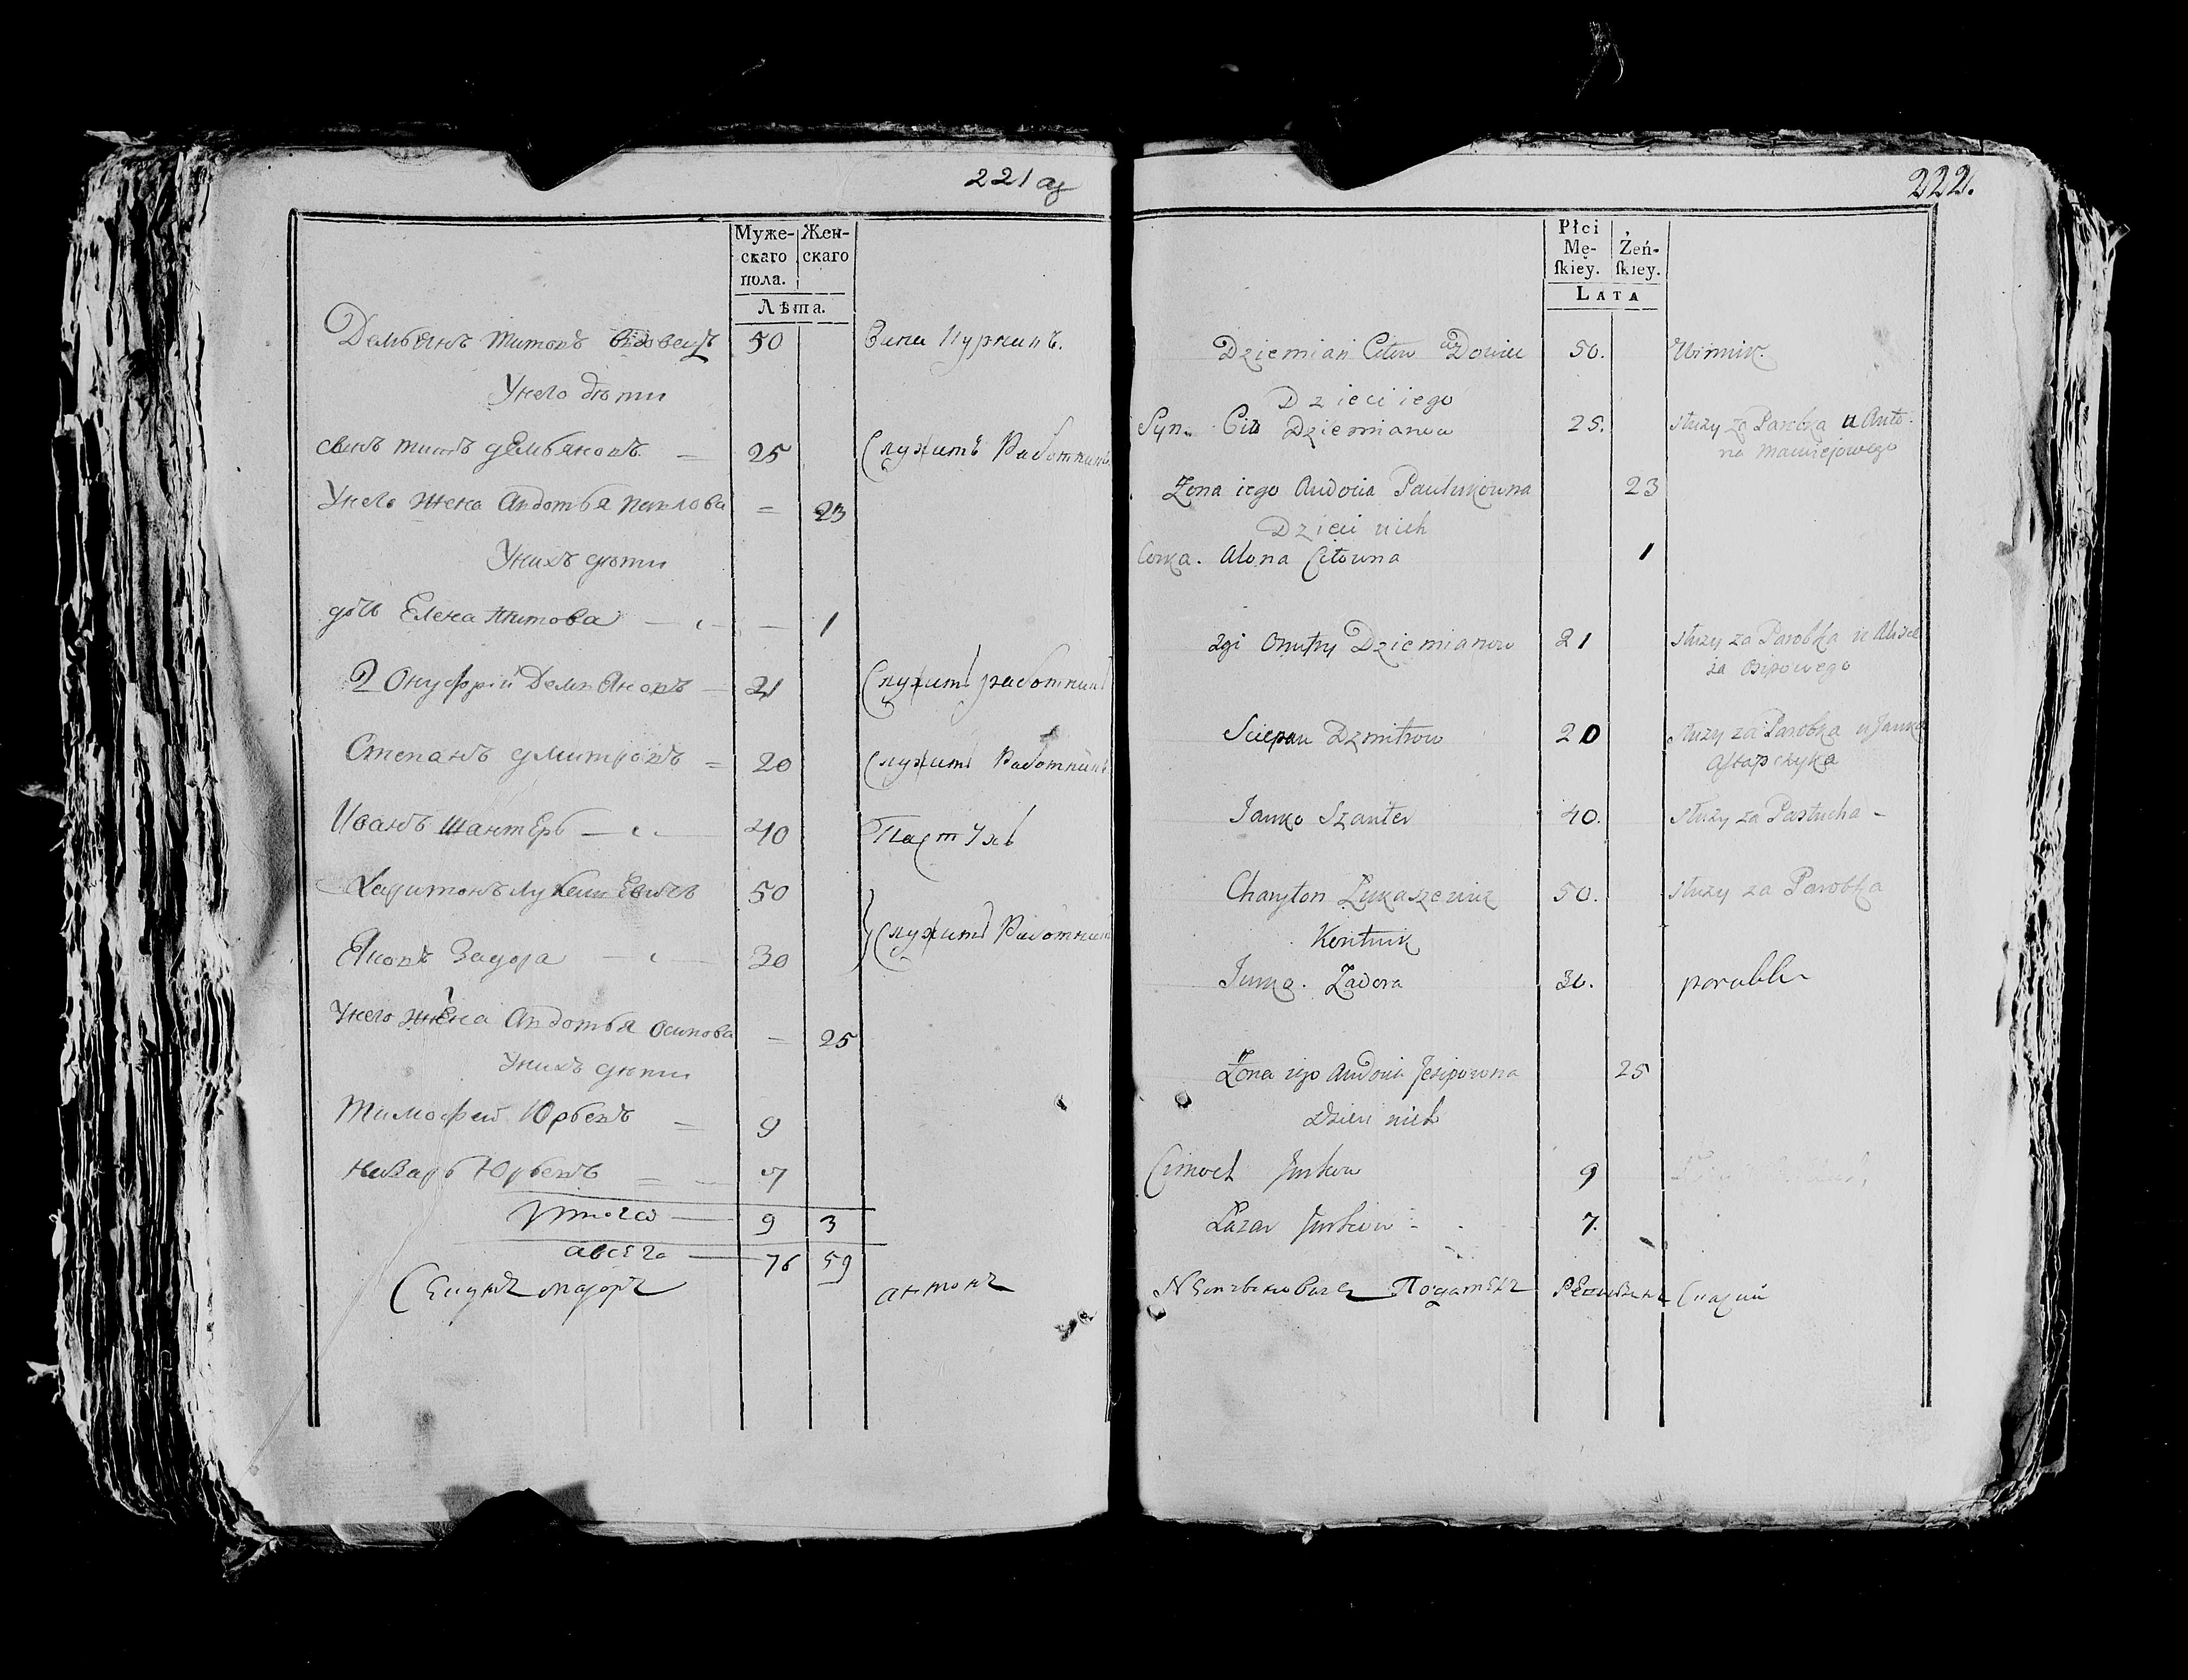 221 об
Муже-
скаго
пола.
Жен-
скаго
Лѣта.
Демьянъ Титовъ вдовецъ 50 Вина Курчикъ.
Унего дѣти
Сынъ Титъ Демьяновъ 25 Служитъ Работником
Унего жена Авдотья Павлова 23
Унихъ дѣти
дочь Елена Титова 1
2 Онуфрій Демьяновъ 21 Служитъ работник
Степанъ Дмитровъ 20 Служитъ Работник
Иванъ Шантеръ 40 Пастухъ
Харитонъ Лукашевичъ 50
Служитъ Работник
Яковъ Задора 30
Унего жена Авдотья Осипова 25
Унихъ дѣти
Тимофей Юрьевъ 9
Назаръ Юрьевъ 7
Итого 9 3
авсего 76 59
Секундъ маіоръ антонъ
222.
Płci
Mę-
ſkiey.
Żeń-
ſkiey.
LATA
Dziemian Citow Dowiec 50. Winnik.
Dzieci iego
Syn. Cit Dziemianow 25. służy za Parobka u Anto-
na Maciejowego
Zona iego Audocia Paulukowna 23
Dzieci nich
Corka. Alona Citowna 1
2gi Onufry Dziemianow 21 służy za Parobka u
za Osipowego
Sciepan Dzmitrow 20 służy za Parobka u Janka
Astapczyka
Janko Szanter 40. służy za Pastucha -
Charyton Łukaszewicz 50. służy za Parobka
Kontnik
Jurka. Zadora 30. parobk
Zona iego Audocia Jesipowna 25
Dzieci nich
Cimoch Jurkow 9
Łazar Jurkow 7.
Податель Ревизкие Скаски